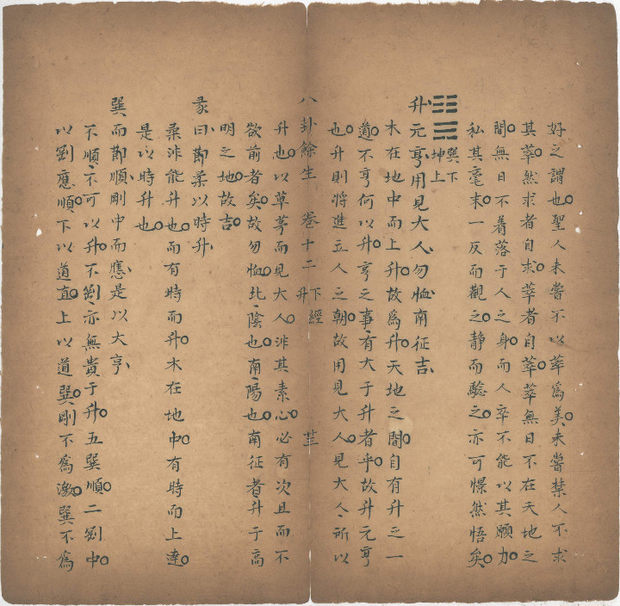 好之謂也聖人未嘗不以萃為美未嘗禁人不求
其萃然求者自求萃者自萃萃無日不在天地之
間無日不着落于人之身而人卒不能以其願力
私其毫末一反而觀之靜而驗之亦可憬然悟矣
巽下
坤上
升元亨用見大人勿恤南征吉
木在地中而上升故為升天地之間自有升之一
道不亨何以升亨之事有大于升者乎故升元亨
也升則將進立人之朝故用見大人見大人所以
八卦餘生 卷十二 下經 升
升也以草茅而見大人非其素心必有次且而不
欲前者矣故勿恤北陰也南陽也南征者升于高
明之地故吉
彖曰柔以時升
柔非能升也而有時而升木在地中有時而上達
是以時升也
巽而順剛中而應是以大亨
不順不可以升不剛亦無貴于升五巽順二剛中
以剛應順下以道直上以道巽剛不為激巽不為